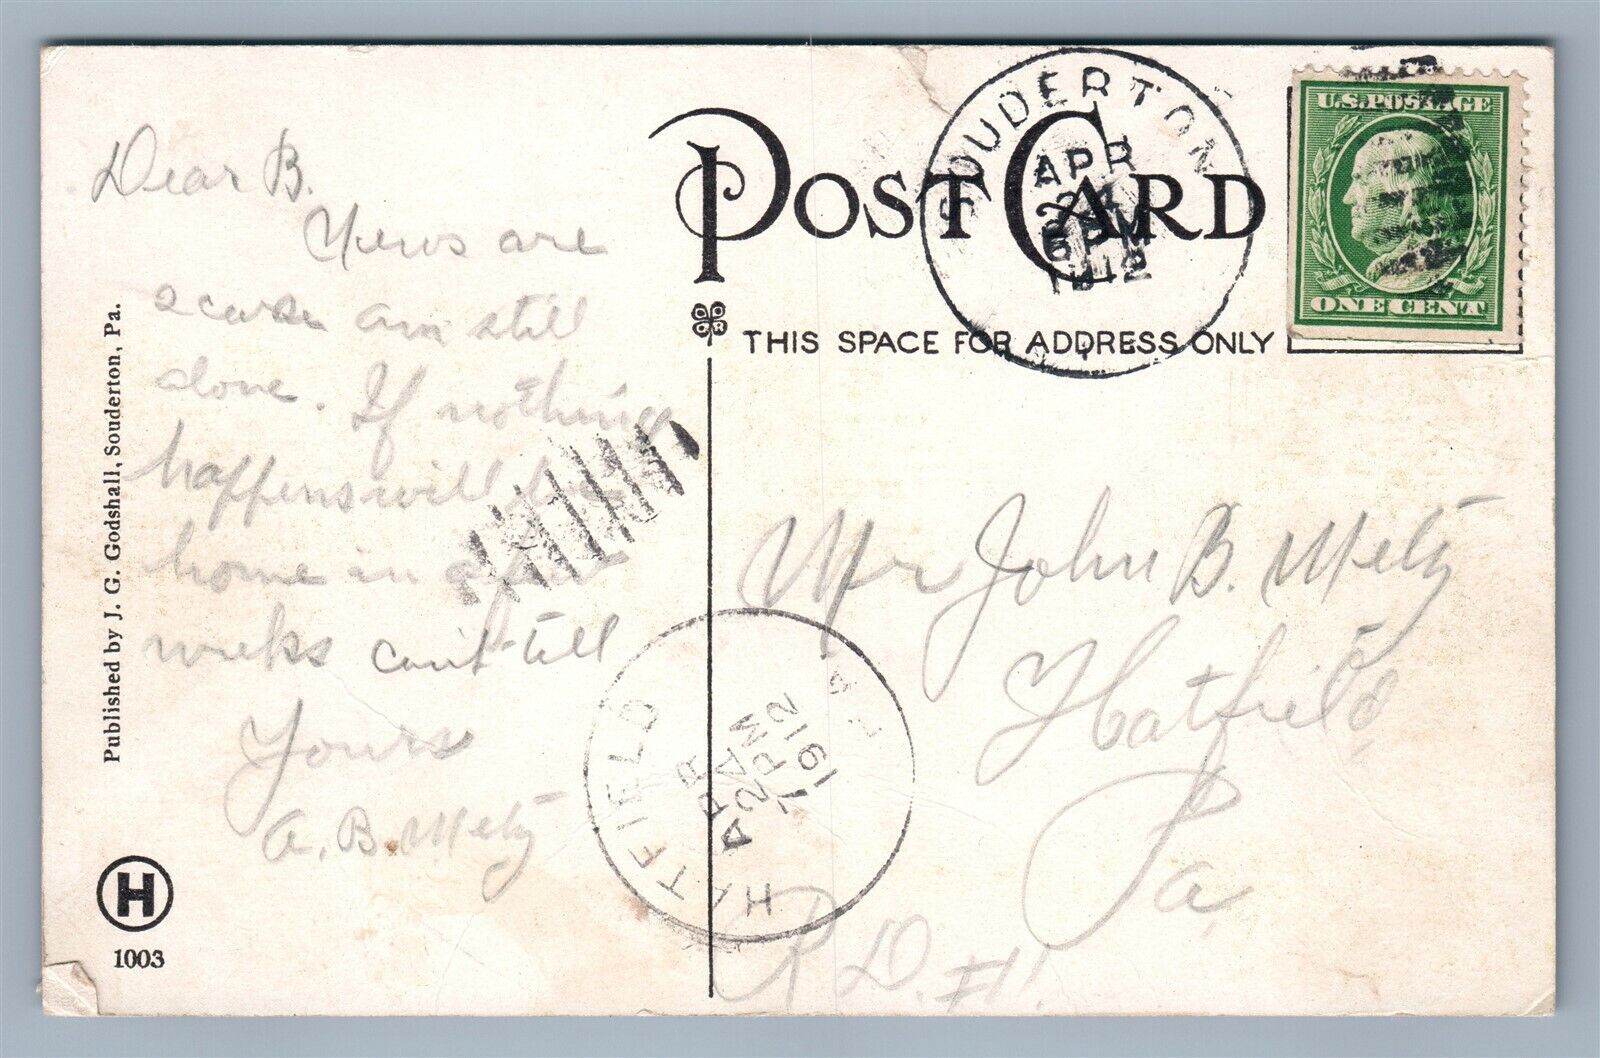 POST CARD
THIS SPACE FOR ADDRESS ONLY
SOUDERTON
APR
24
6 PM
1912
U.S. POSTAGE
ONE CENT
Dear B.
Views are
scarse am still
alone. If nothing
happens will be
home in a few
weeks can't tell
Yours
A. B. Metz
Mr John B. Metz
Hatfield
Pa.
R D. #1.
HATFIELD
PA.
APR
24
7 PM
1912
Published by J. G. Godshall, Souderton, Pa.
H
1003